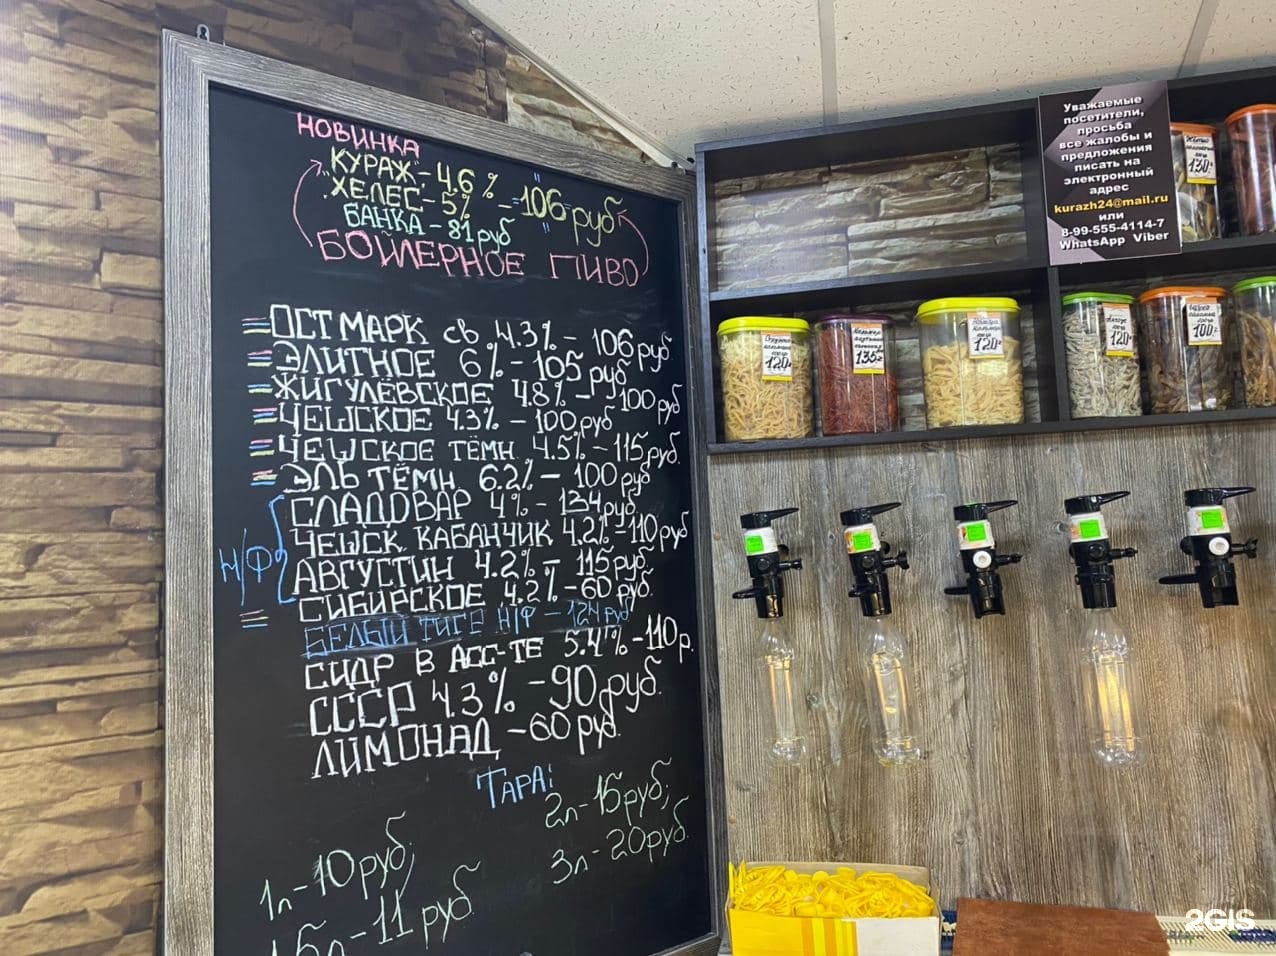 НОВИНКА
"КУРАЖ" - 4.6 % - "
ХЕЛЕС - 5% - 106 руб
БАНКА - 81 руб
БОЙЛЕРНОЕ ПИВО
ОСТМАРК св. 4.3% - 106 руб
ЭЛИТНОЕ 6% - 105 руб
ЖИГУЛЁВСКОЕ 4.8% - 100 руб
ЧЕШСКОЕ 4.3% - 100 руб
ЧЕШСКОЕ ТЁМН. 4.5% - 115 руб.
ЭЛЬ ТЁМН 6.2% - 100 руб
Н/Ф
СЛАДОВАР 4% - 134 руб
ЧЕШСК. КАБАНЧИК 4.2% - 110 руб
АВГУСТИН 4.2% - 115 руб.
СИБИРСКОЕ 4.2% - 60 руб.
БЕЛЫЙ ТИГР Н/Ф - 124 руб
СИДР В АСС-ТЕ 5.4% - 110 р.
СССР 4.3% - 90 руб.
ЛИМОНАД - 60 руб.
ТАРА:
1л - 10 руб;
2л - 15 руб;
1.5л - 11 руб
3л - 20 руб.
Уважаемые
посетители,
просьба
все жалобы и
предложения
писать на
электронный
адрес
kurazh24@mail.ru
или
8-99-555-4114-7
WhatsApp Viber
130
120
135
120
120
100
2GIS